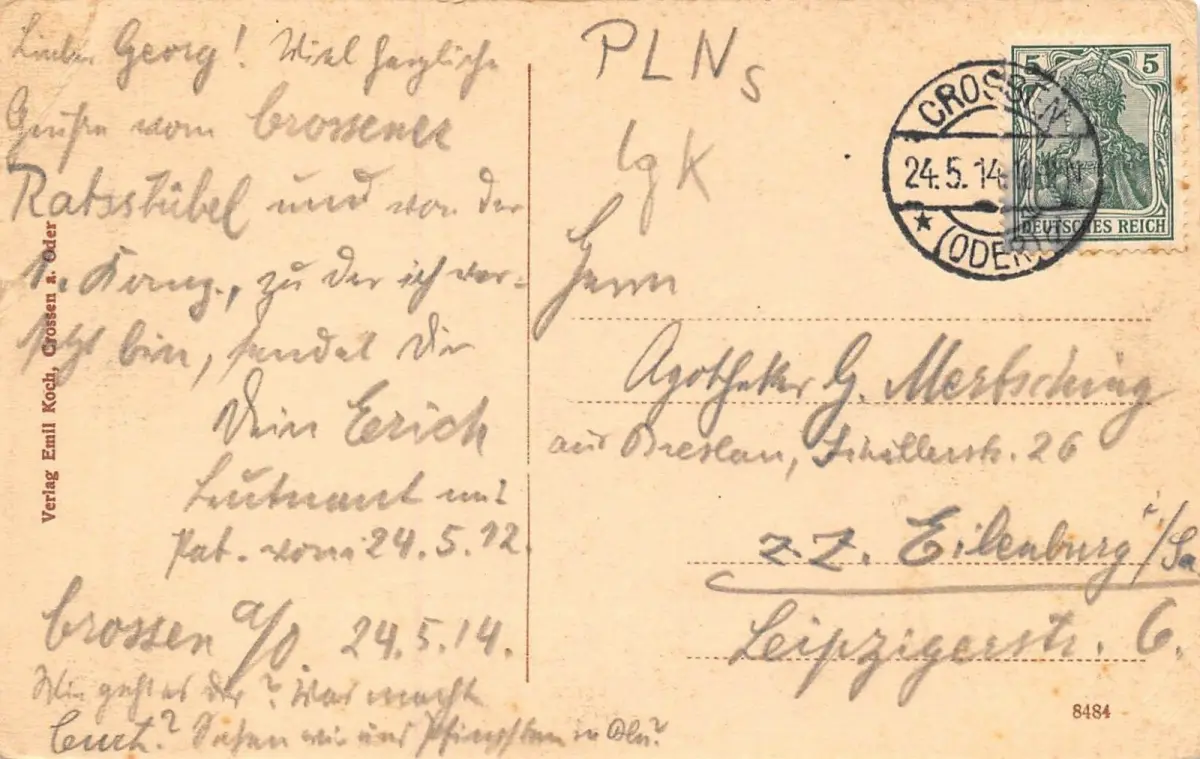 Lieber Georg! Viel herzliche
Grüße vom Crossener
Ratsstübel und von der
1. Komp., zu der ich ver-
setzt bin, sendet Dir
Dein Erich
Leutnant mit
Pat. vom 24.5.12.
Crossen a/O. 24.5.14.
Wie geht es Dir? Was macht
Curt? Sehen wir uns Pfingsten in Bln?
Verlag Emil Koch, Crossen a. Oder
PLN s
lg K
5 5
DEUTSCHES REICH
CROSSEN
24.5.14
(ODER)
Herrn
Apotheker G. Mertsching
aus Breslau, Schillerstr. 26
z. Z. Eilenburg i/Sa
Leipzigerstr. 6.
8484